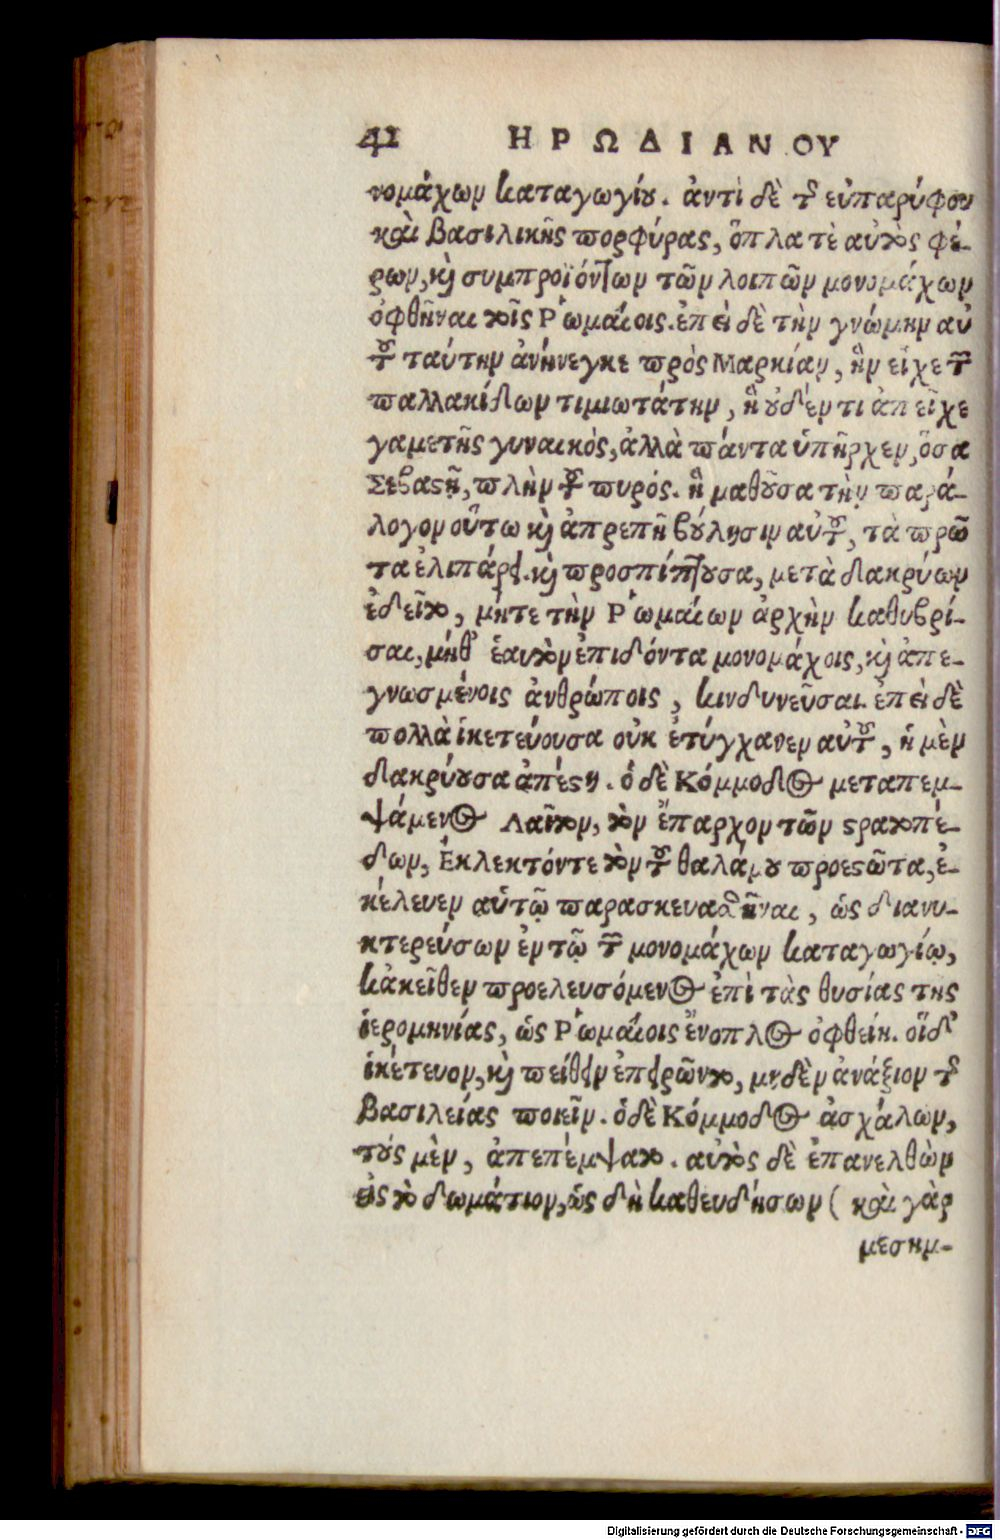 42 ΗΡΩΔΙΑΝΟΥ
νομάχων καταγωγίου. ἀντὶ δὲ τῆς εὐπαρύφου
καὶ βασιλικῆς πορφύρας, ὅπλα τὲ αὐτὸς φέ-
ρων, καὶ συμπροϊόντων τῶν λοιπῶν μονομάχων
ὀφθῆναι τοῖς Ῥωμαίοις. ἐπεὶ δὲ τὴν γνώμην αὐ
τοῦ ταύτην ἀνήνεγκε πρὸς Μαρκίαν, ἣν εἶχε τῶν
παλλακίδων τιμιωτάτην, ἣ οὐδέν τι ἀπεῖχε
γαμετῆς γυναικὸς, ἀλλὰ πάντα ὑπῆρχεν, ὅσα
Σεβαστῇ, πλὴν τοῦ πυρός. ἣ μαθοῦσα τὴν παρά-
λογον οὕτω καὶ ἀπρεπῆ βούλησιν αὐτοῦ, τὰ πρῶ
τα ἐλιπάρει. καὶ προσπίπτουσα, μετὰ δακρύων
ἐδεῖτο, μήτε τὴν Ῥωμαίων ἀρχὴν καθυβρί-
σαι, μήθ' ἑαυτὸν ἐπιδόντα μονομάχοις, καὶ ἀπε-
γνωσμένοις ἀνθρώποις, κινδυνεῦσαι. ἐπεὶ δὲ
πολλὰ ἱκετεύουσα οὐκ ἐτύγχανεν αὐτοῦ, ἡ μὲν
δακρύουσα ἀπέστη. ὁ δὲ Κόμμοδος μεταπεμ-
ψάμενος Λαῖτον, τὸν ἔπαρχον τῶν στρατοπέ-
δων, Ἐκλεκτόντε τὸν τοῦ θαλάμου προεστῶτα, ἐ-
κέλευεν αὑτῷ παρασκευασθῆναι, ὡς διανυ-
κτερεύσων ἐν τῷ τῶν μονομάχων καταγωγίῳ,
κἀκεῖθεν προελευσόμενος ἐπὶ τὰς θυσίας της
ἱερομηνίας, ὡς Ῥωμαίοις ἔνοπλος ὀφθείη. οἵδ'
ἱκέτευον, καὶ πείθειν ἐπειρῶντο, μηδὲν ἀνάξιον τῆς
βασιλείας ποιεῖν. ὁ δὲ Κόμμοδος ἀσχάλων,
τοὺς μὲν, ἀπεπέμψατο. αὐτὸς δὲ ἐπανελθὼν
εἰς τὸ δωμάτιον, ὡς δὴ καθευδήσων ( καὶ γὰρ
μεσημ-
Digitalisierung gefördert durch die Deutsche Forschungsgemeinschaft - DFG